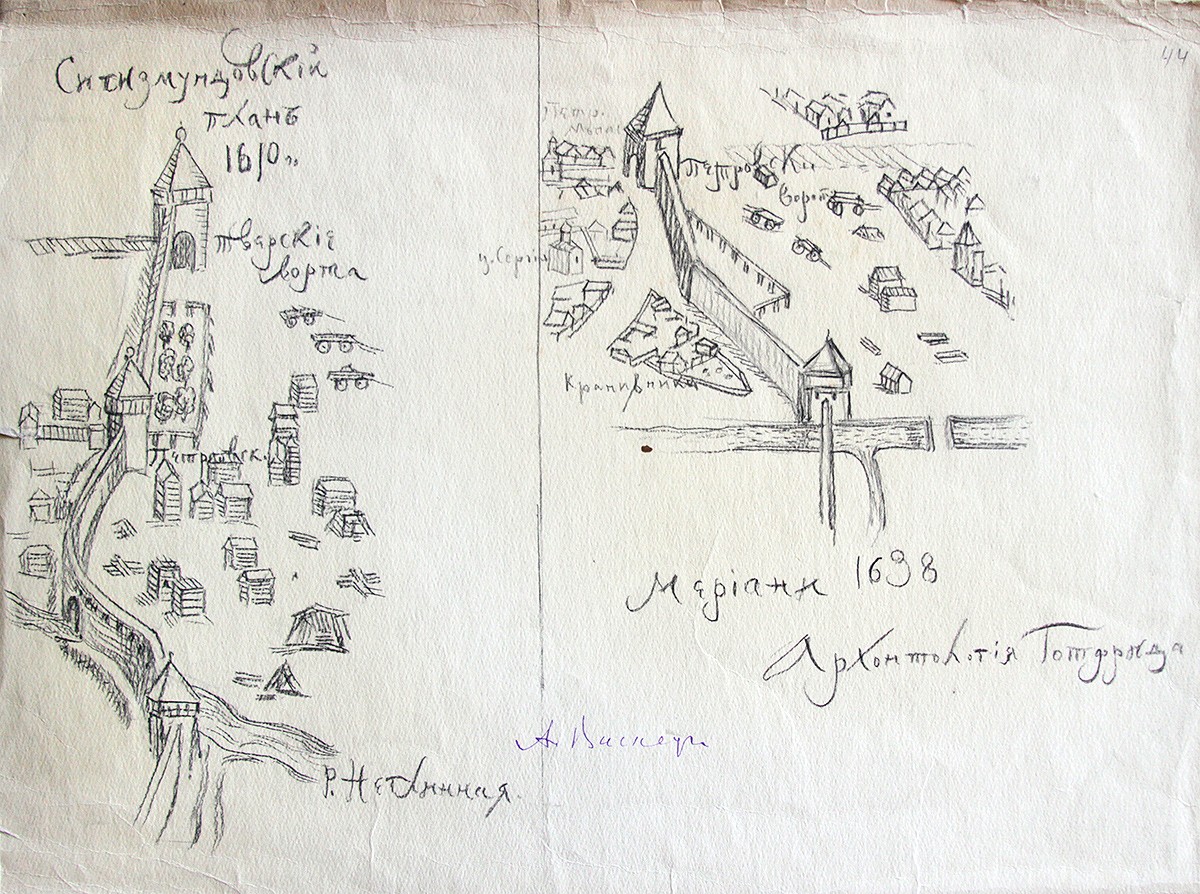 Сигизмундовскій
планъ
1610 го
Тверскіе
ворта
Петровск.
Р. Неглинная.
44
Петр.
Петровски
ворот
ц. Сергія
Крапивники
Меріанн 1638
Архонтологія Готфрида
А. Васнецовъ